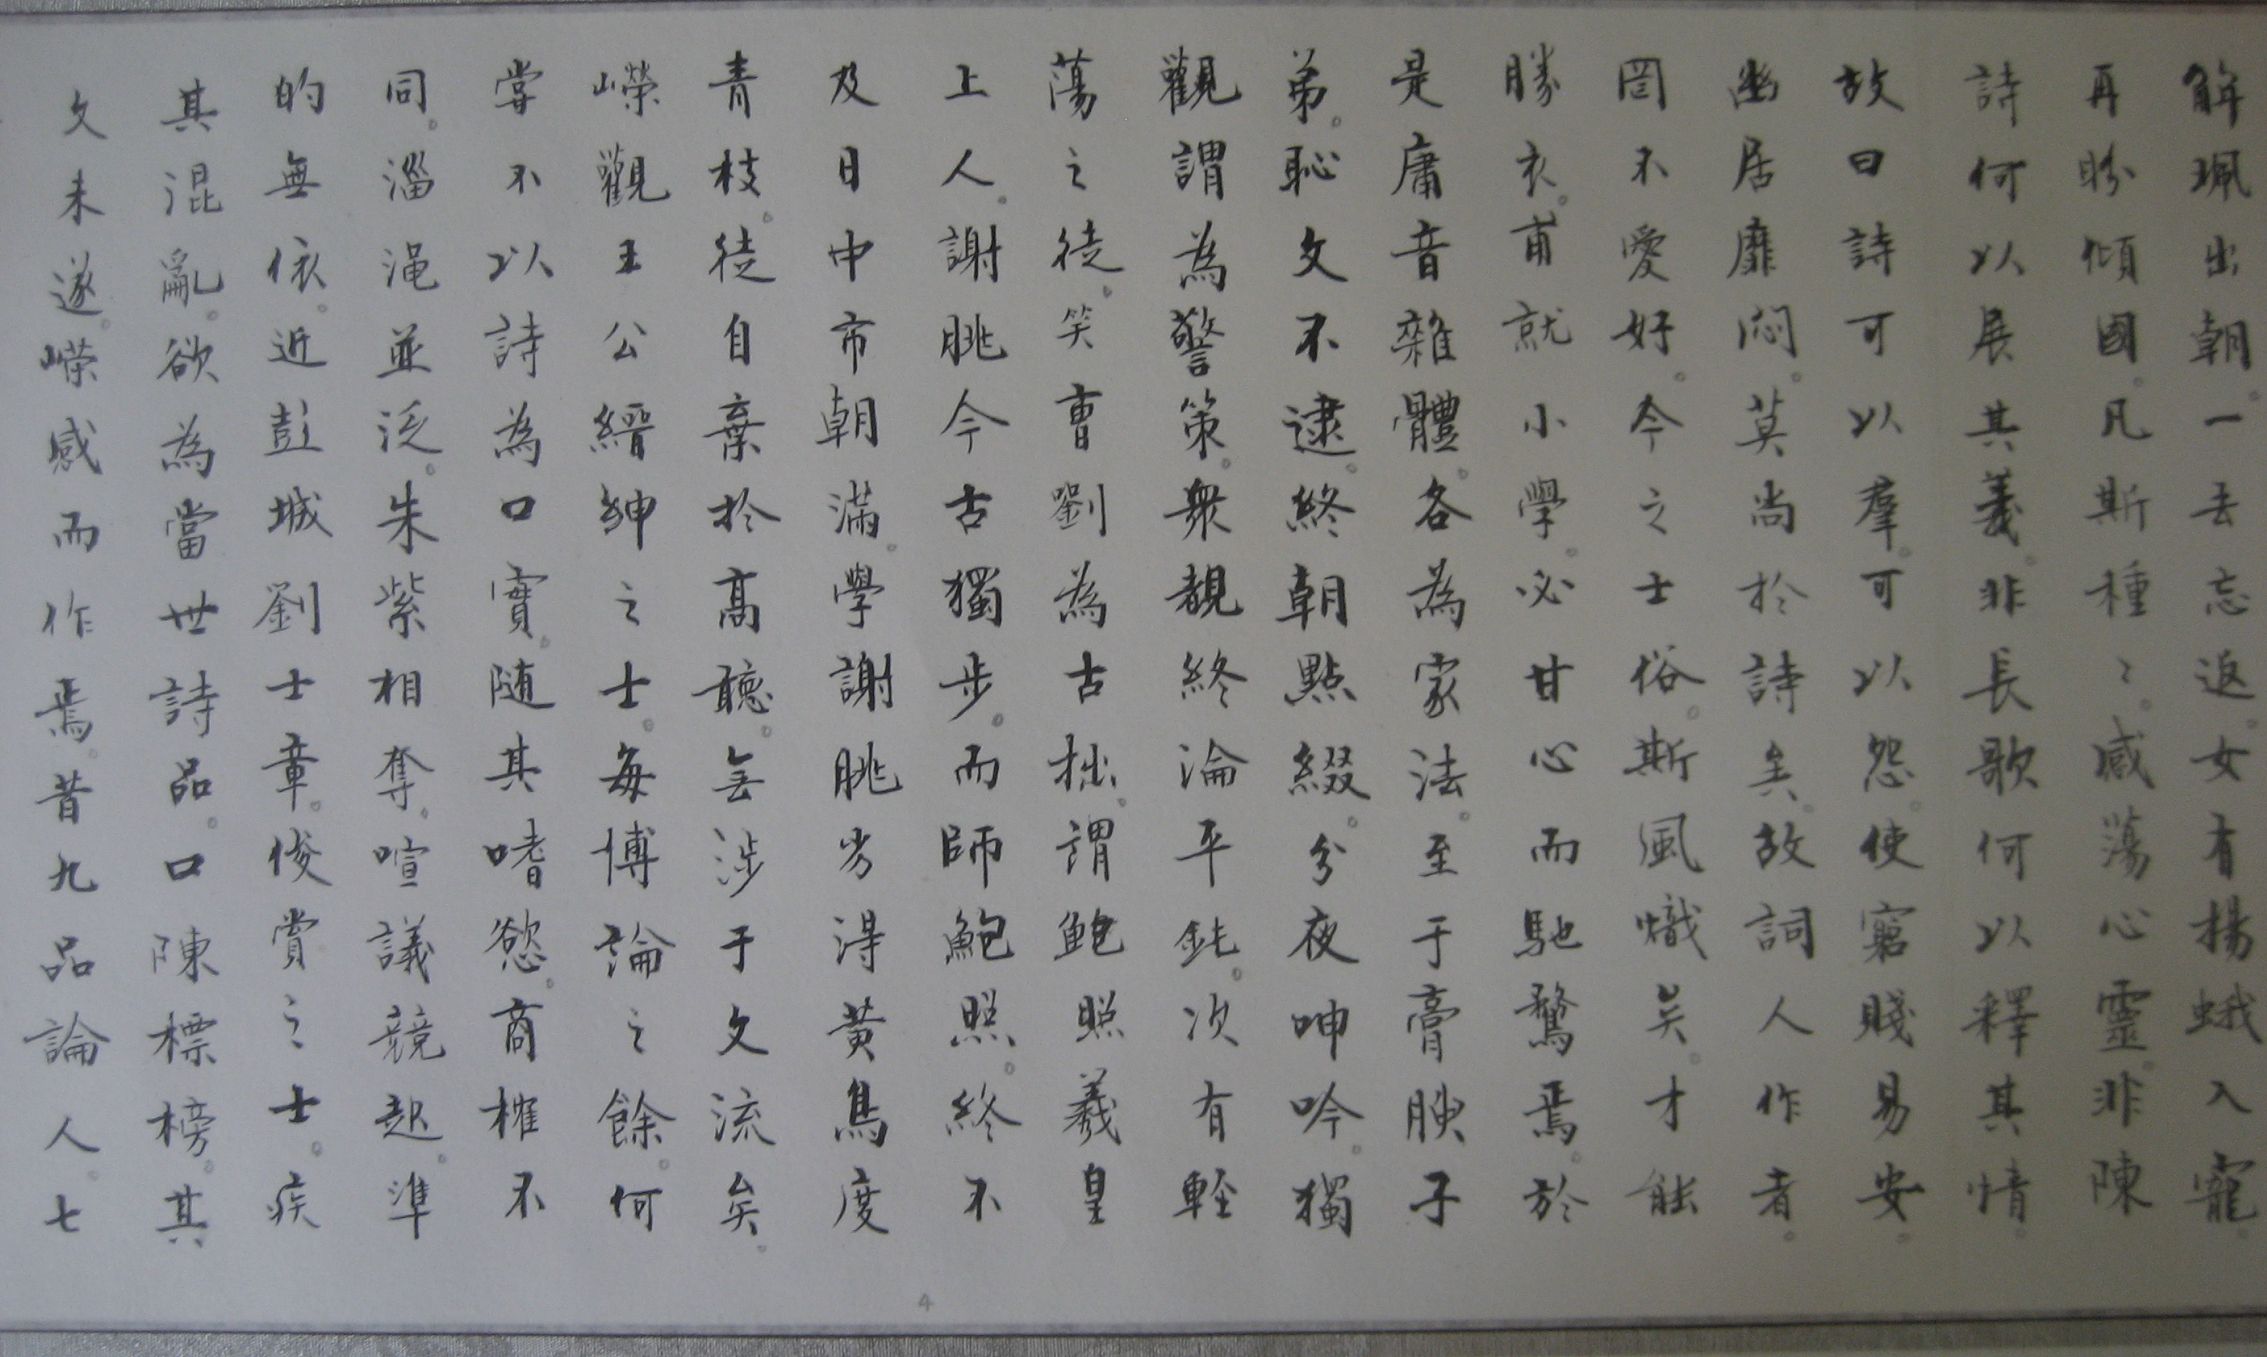 解珮出朝。一去忘返。女有揚蛾入寵。
再盼傾國。凡斯種〻。感蕩心靈。非陳
詩何以展其義。非長歌何以釋其情。
故曰詩可以羣。可以怨。使窮賤易安。
幽居靡悶。莫尚於詩矣。故詞人作者。
罔不愛好。今之士俗。斯風熾矣。才能
勝衣。甫就小學。必甘心而馳騖焉。於
是庸音雜體。各為家法。至于膏腴子
弟。恥文不逮。終朝點綴。分夜呻吟。獨
觀謂為警策。衆覩終淪平鈍。次有輕
蕩之徒。笑曹劉為古拙。謂鮑照羲皇
上人。謝朓今古獨步。而師鮑照。終不
及日中市朝滿。學謝朓劣淂黄鳥度
青枝。徒自棄於髙聽。無涉于文流矣。
嶸觀王公縉紳之士。每博論之餘。何
嘗不以詩為口實。随其嗜慾。商榷不
同。淄渑並泛。朱紫相奪。喧議競起。準
的無依。近彭城劉士章。俊賞之士。疾
其混亂。欲為當世詩品。口陳標榜。其
文未遂。嶸感而作焉。昔九品論人。七
4